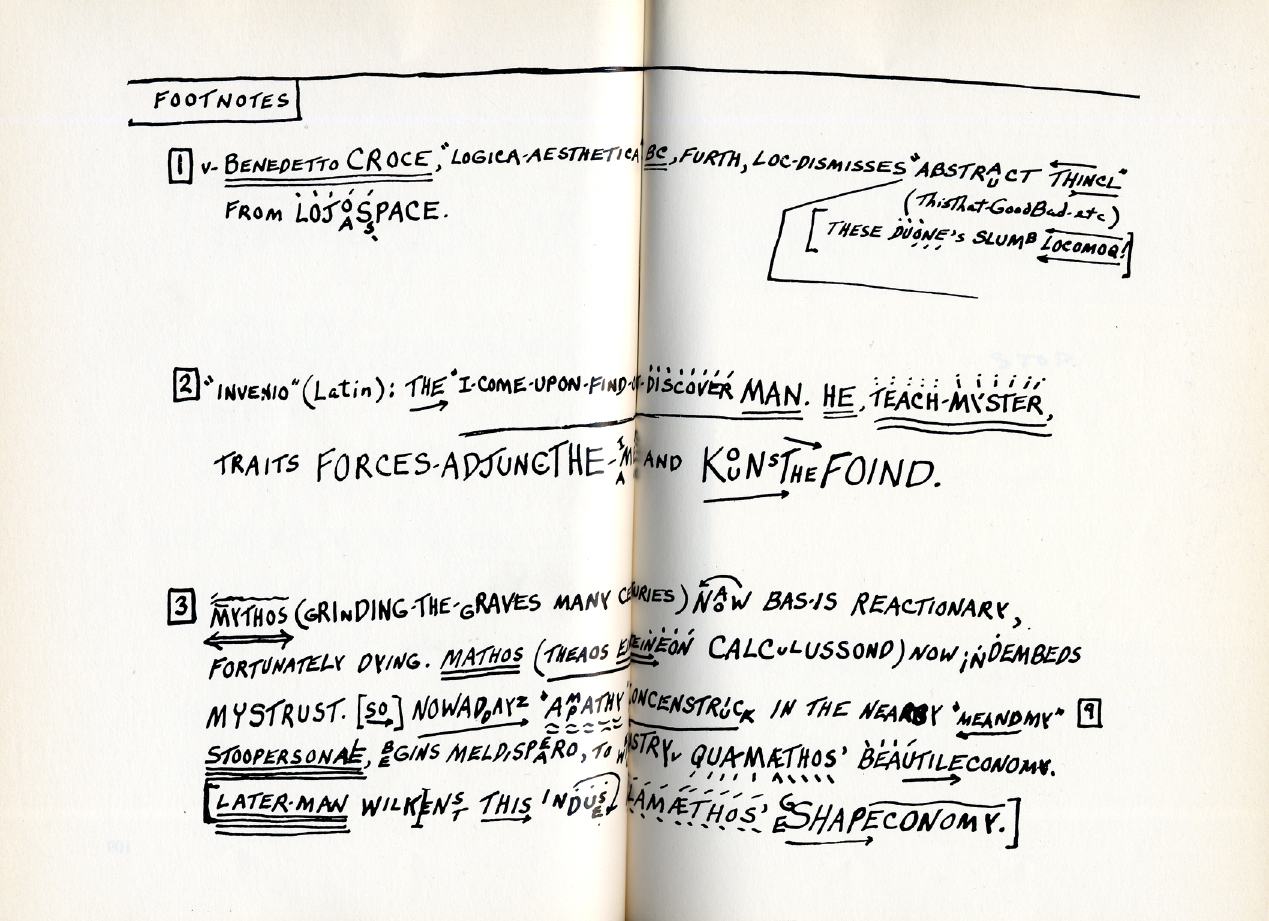 FOOTNOTES
1 v- BENEDETTO CROCE, "LOGICA-AESTHETICA" BC, FURTH, LOC-DISMISSES "ABSTRAUCT THINCL"
(ThisThat-GoodBad-etc)
FROM LOJOASSPACE.
[THESE DUONE's SLUMB LOCOMOQ!]
2 "INVENIO" (Latin): THE "I-COME-UPON-FIND-DISCOVER MAN. HE, TEACH-MYSTER,
TRAITS FORCES-ADJUNCTHE- AND KOUNSTHEFOIND.
3 MYTHOS (GRINDING-THE-GRAVES MANY CENTURIES) NAOW BAS-IS REACTIONARY,
FORTUNATELY DYING. MATHOS (THEAOS CALCULUSSOND) NOW INDEMBEDS
MYSTRUST. [SO] NOWADAYZ "AMPATHY" IN THE "MEANDMY" 9
STOOPERSONAL, MELDISPEARO, TO QUA-MÆTHOS' BEAUTILECONOMY.
[LATER-MAN THIS SHAPECONOMY.]